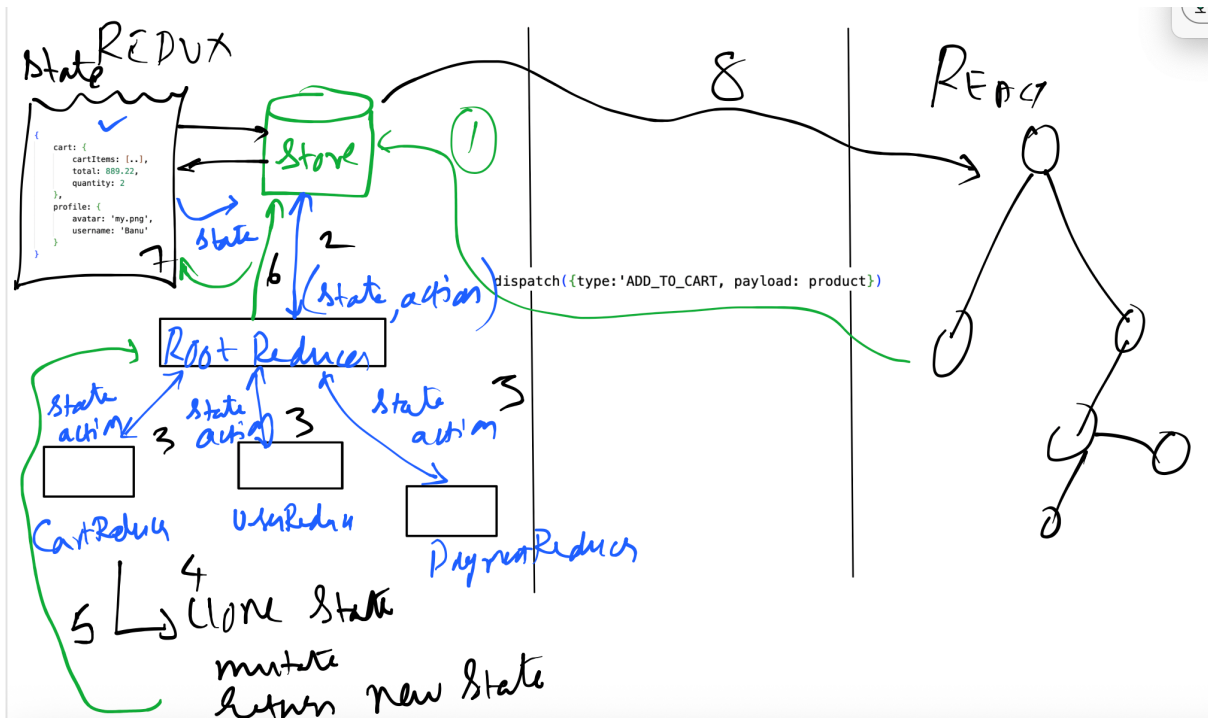 REDUX
State
8
REACT
{
cart: {
cartItems: [..],
total: 889.22,
quantity: 2
},
profile: {
avatar: 'my.png',
username: 'Banu'
}
}
Store
1
State
7
6
2
(State, action)
dispatch({type:'ADD_TO_CART, payload: product})
Root Reducer
State
action
3
State
action
3
State
action
3
CartReducer
UserReducer
PaymentReducer
4
5
Clone State
mutate
return new State